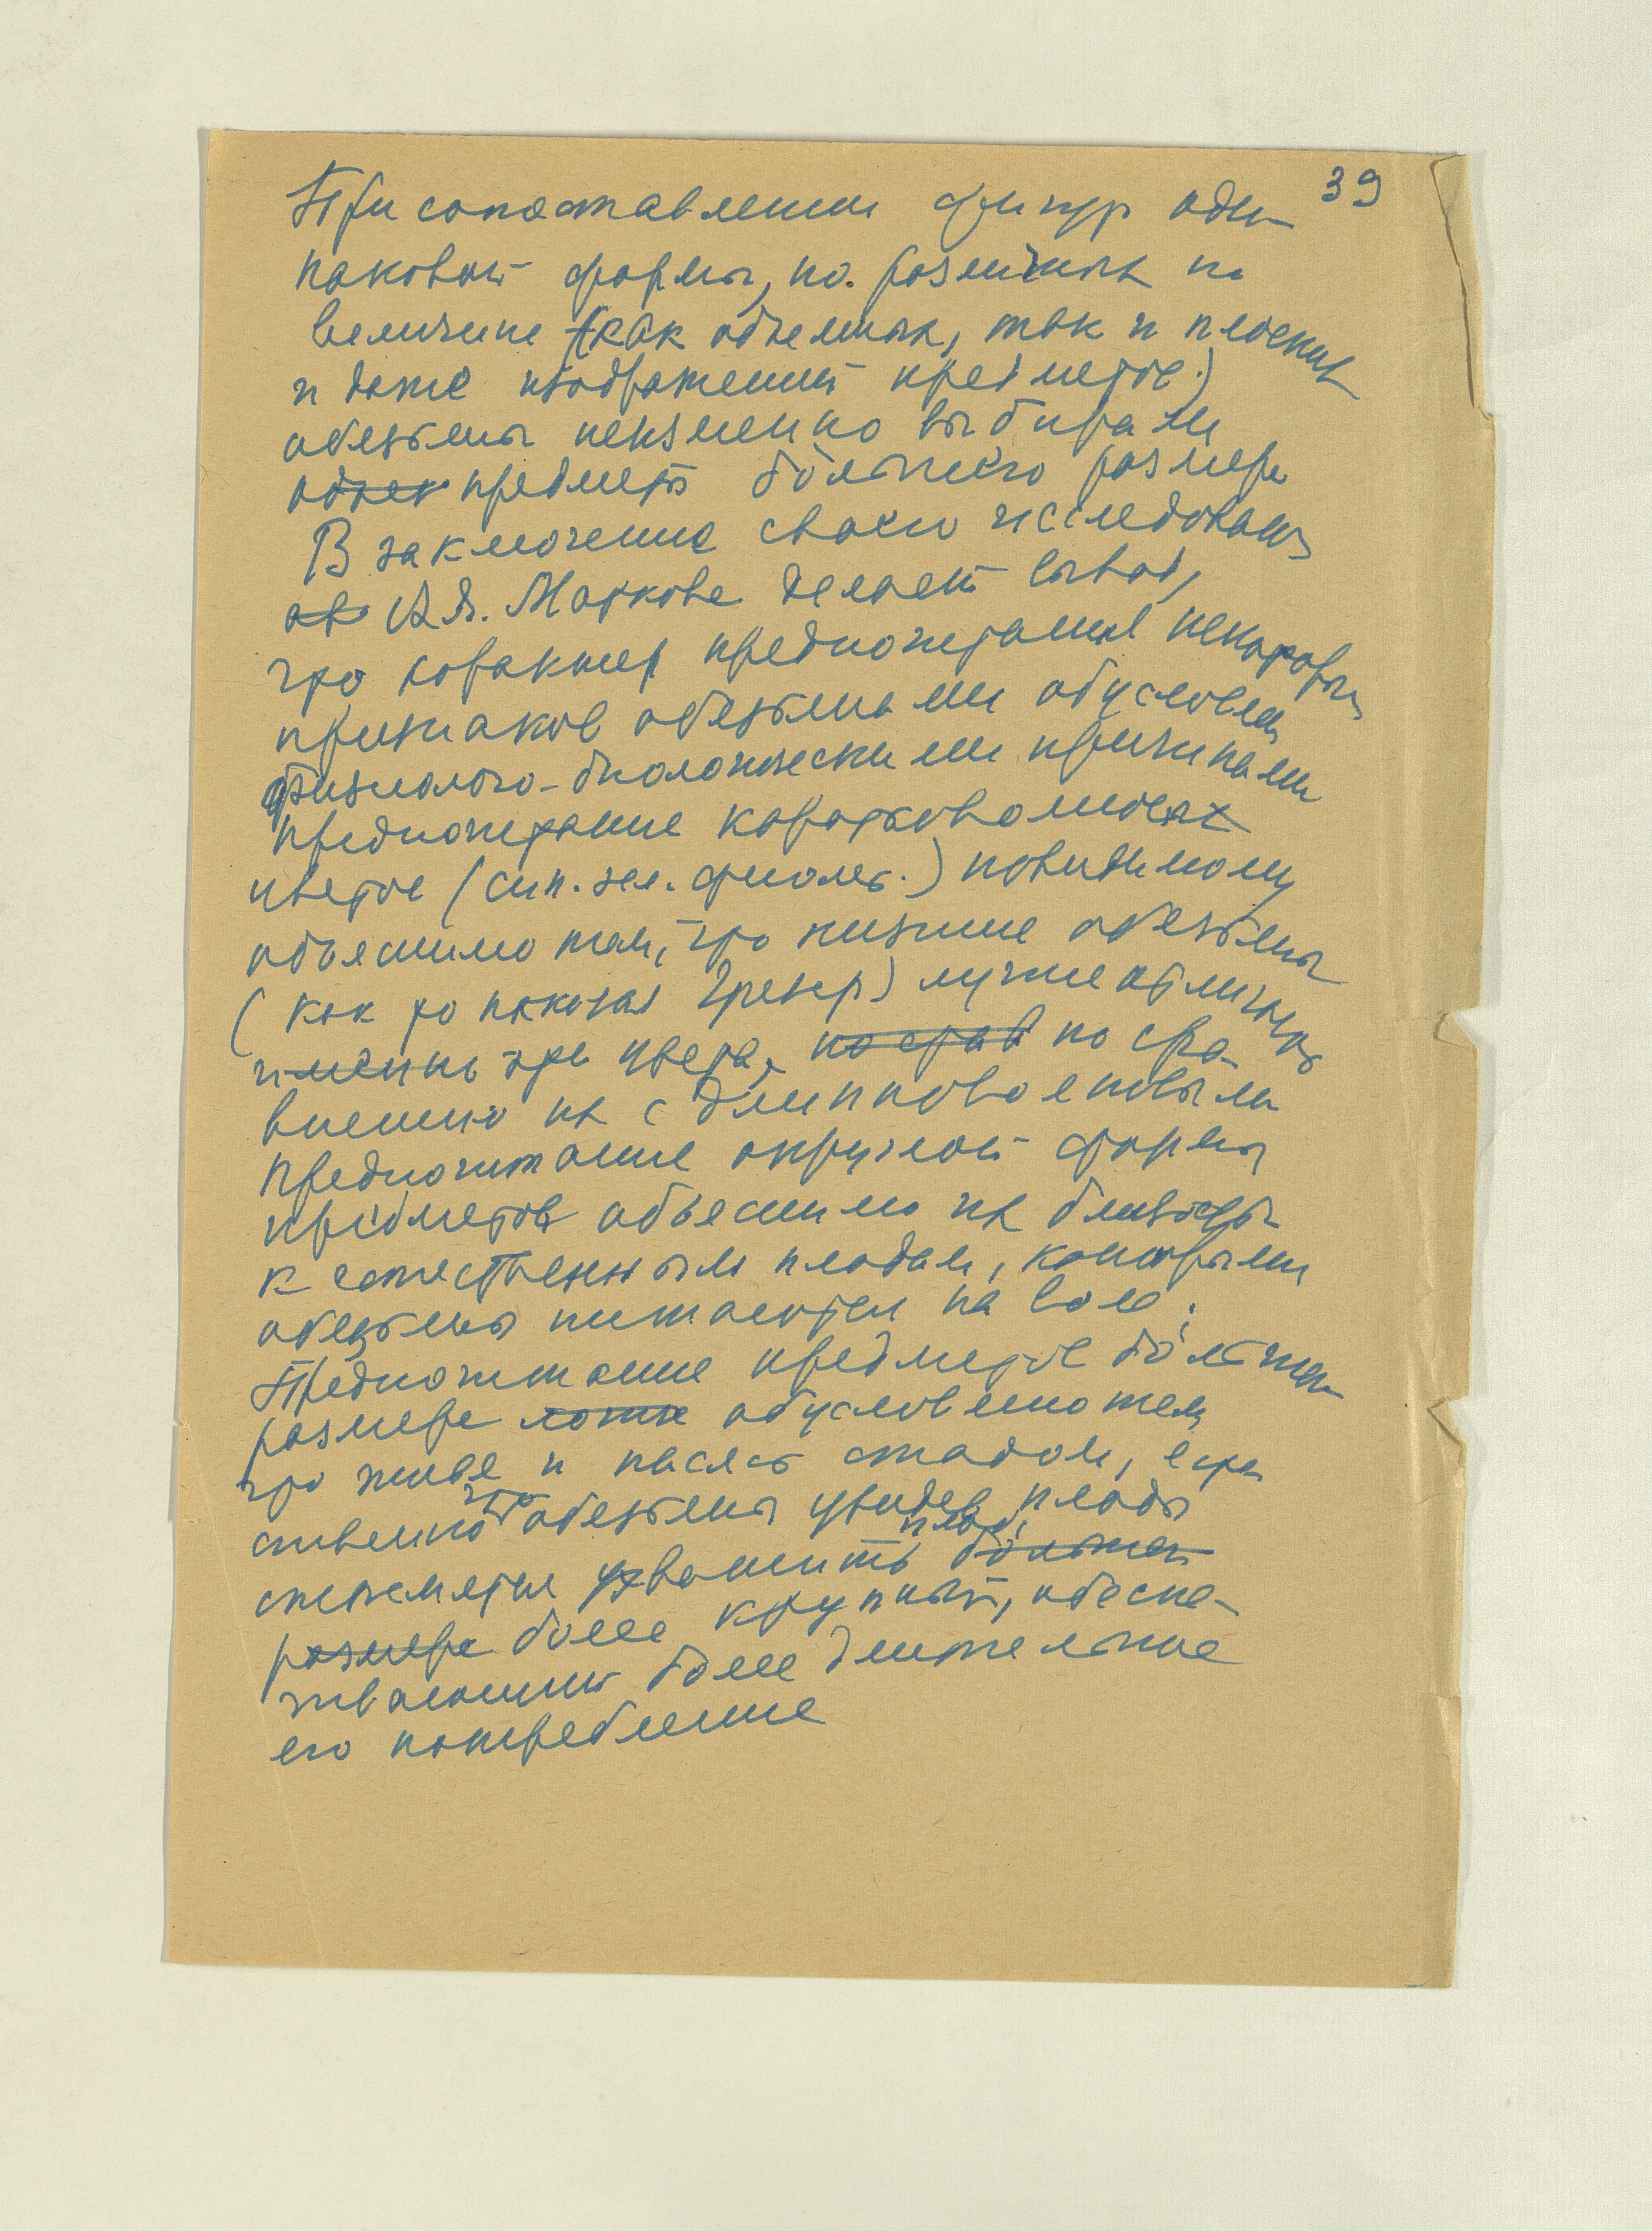 39
При сопоставлении фигур оди-
наковой формы, но различных по
величине (как объемных, так и плоских
и даже изображений предметов)
обезьяны неизменно выбирали
предметы бо́льшего размера
В заключение своего исследования
А.Я. Маркова делает вывод,
что характер предпочитания некоторых
признаков обезьянами обусловлен
физиолого-биологическими причинами
предпочитание коротковолновых
цветов (син. зел. фиолет.) повидимому
объяснимо тем, что низшие обезьяны
(как то показал Трезер) лучше отличают
именно эти цвета, по сра-
внению их с длинноволновыми
Предпочитание округлой формы
предметов объяснимо их близостью
к естественным плодам, которыми
обезьяны питаются на воле.
Предпочитание предметов бо́льшего
размера обусловлено тем
что живя и пасясь стадом, есте-
ственно что обезьяны увидев плоды
стремятся ухватить плод,
более крупный, обеспе-
чивающий более длительное
его потребление